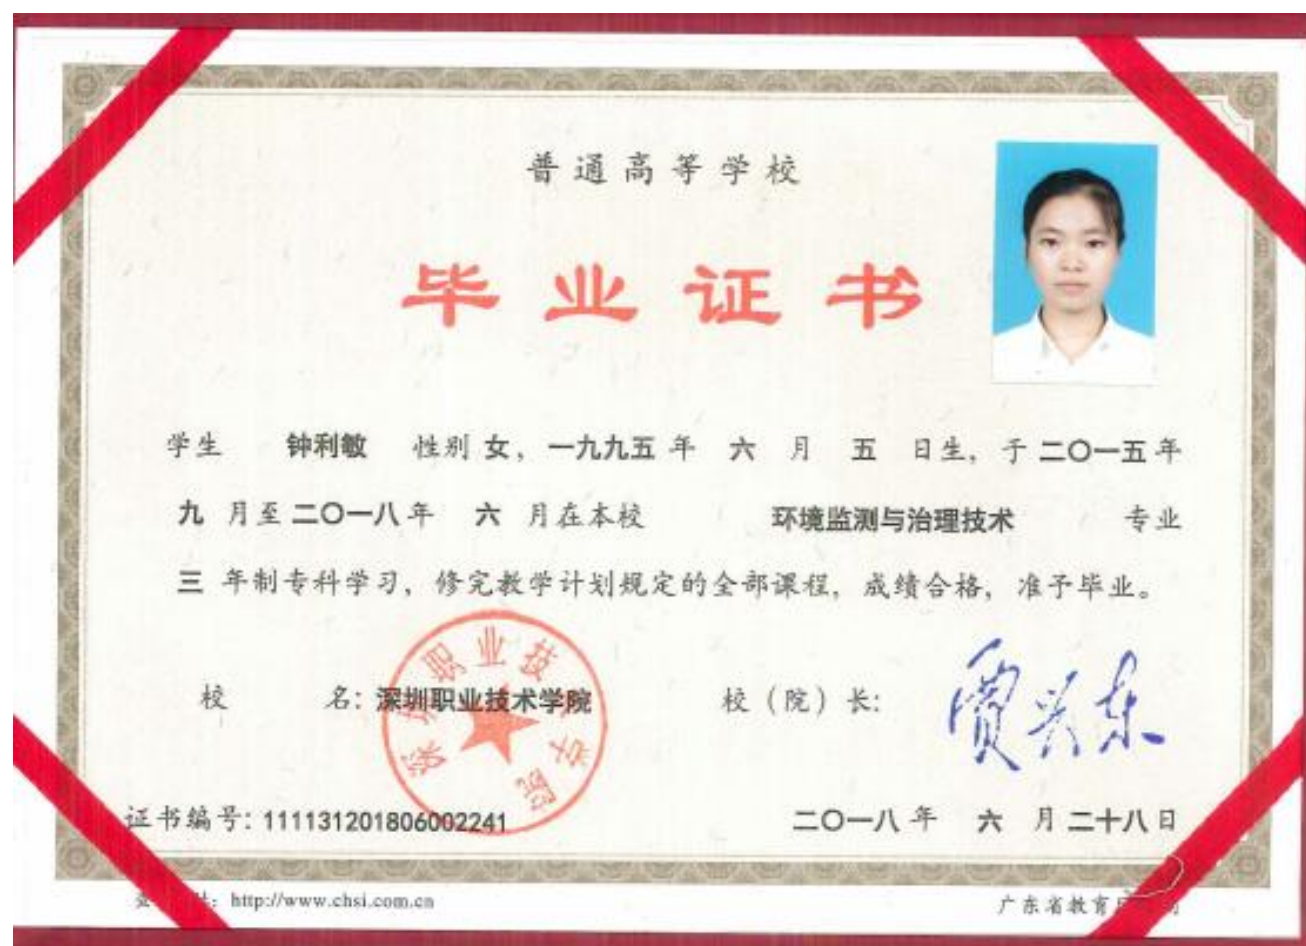 普通高等学校
毕业证书
学生 钟利敏 性别 女，一九九五 年 六 月 五 日生，于 二〇一五 年
九 月至 二〇一八 年 六 月在本校 环境监测与治理技术 专业
三 年制专科学习，修完教学计划规定的全部课程，成绩合格，准予毕业。
校 名：深圳职业技术学院 校（院）长：贾兴东
深圳职业技术学院
证书编号：111131201806002241 二〇一八 年 六 月 二十八 日
http://www.chsi.com.cn 广东省教育